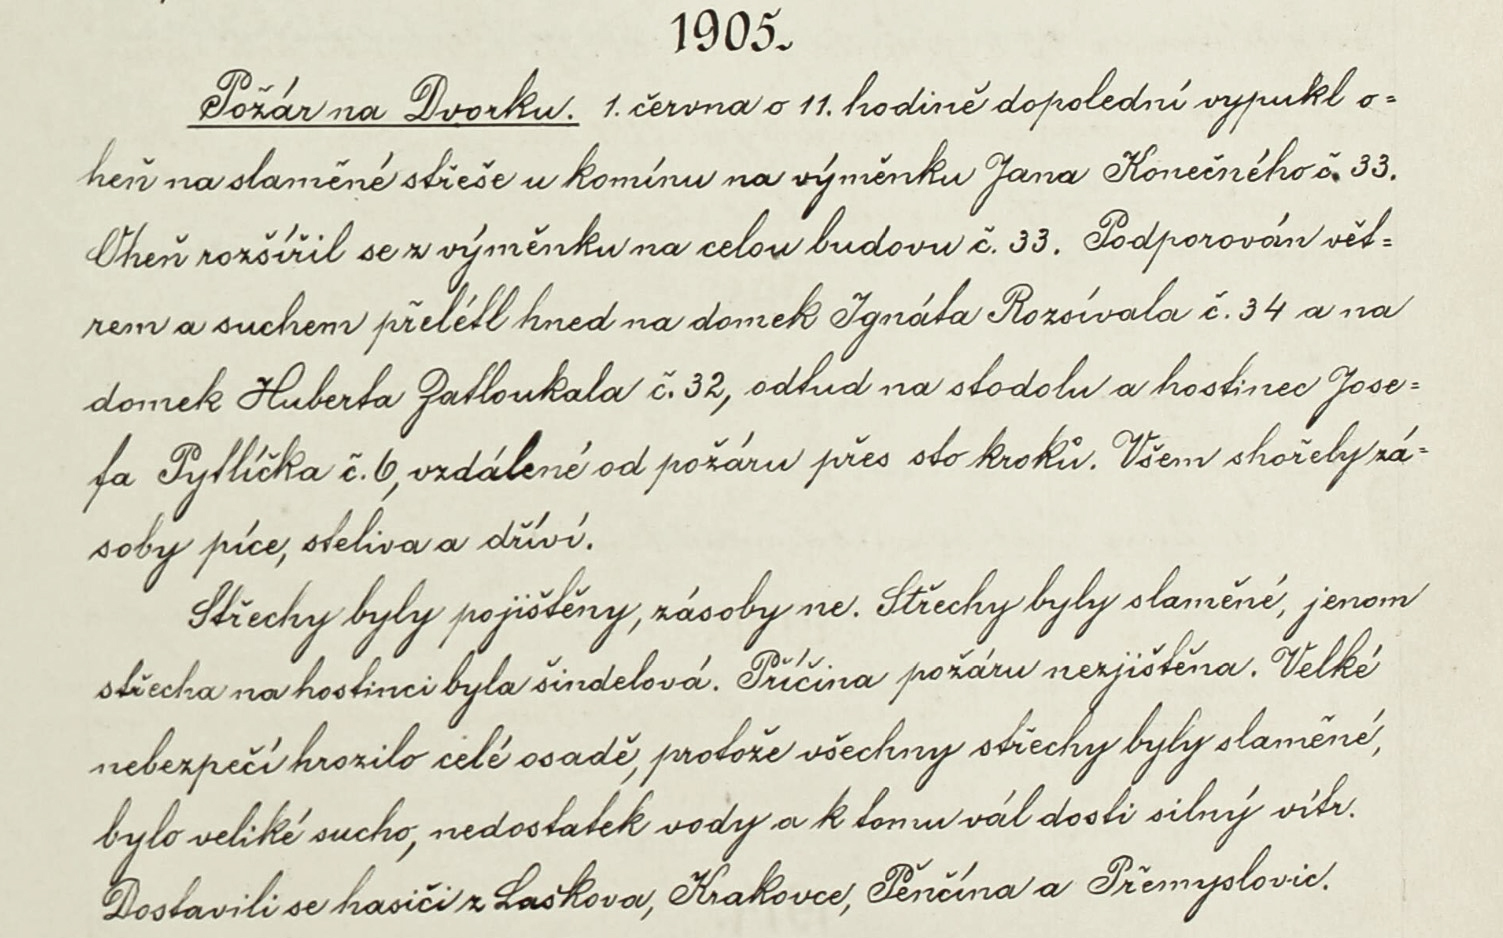 1905.
Požár na Dvorku. 1. června o 11. hodině dopolední vypukl o=
heň na slaměné střeše u komínu na výměnku Jana Konečného č. 33.
Oheň rozšířil se z výměnku na celou budovu č. 33. Podporován vět=
rem a suchem přelétl hned na domek Ignáta Rozsívala č. 34 a na
domek Huberta Zatloukala č. 32, odtud na stodolu a hostinec Jose=
fa Pytlíčka č. 6, vzdálené od požáru přes sto kroků. Všem shořely zá=
soby píce, steliva a dříví.
Střechy byly pojištěny, zásoby ne. Střechy byly slaměné, jenom
střecha na hostinci byla šindelová. Příčina požáru nezjištěna. Velké
nebezpečí hrozilo celé osadě, protože všechny střechy byly slaměné,
bylo veliké sucho, nedostatek vody a k tomu vál dosti silný vítr.
Dostavili se hasiči z Laškova, Krakovce, Pěnčína a Přemyslovic.